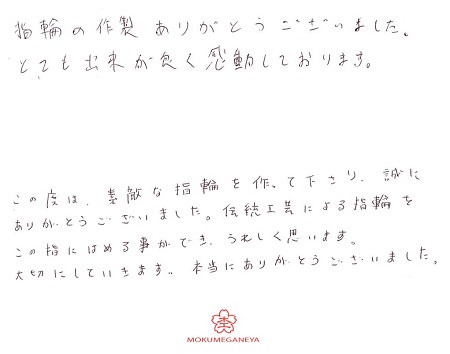 指輪の作製ありがとうございました。
とても出来が良く感動しております。
この度は、素敵な指輪を作って下さり、誠に
ありがとうございました。伝統工芸による指輪を
この指にはめる事ができ、うれしく思います。
大切にしていきます。本当にありがとうございました。
杢
MOKUMEGANEYA